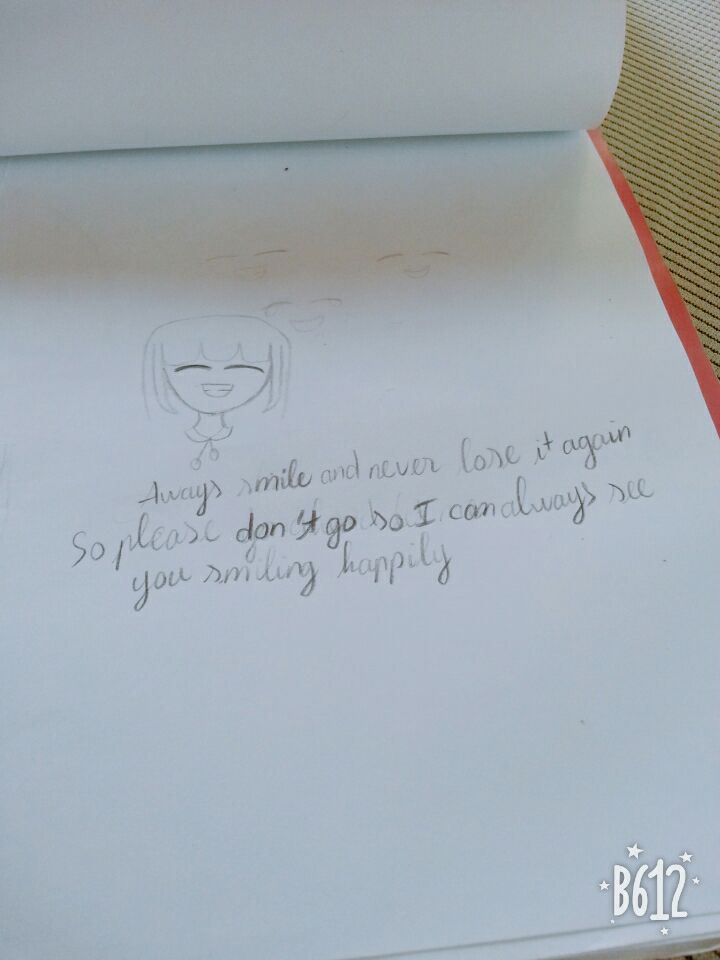 Aways smile and never lose it again
So please don't go so I can always see
you smiling happily
B612